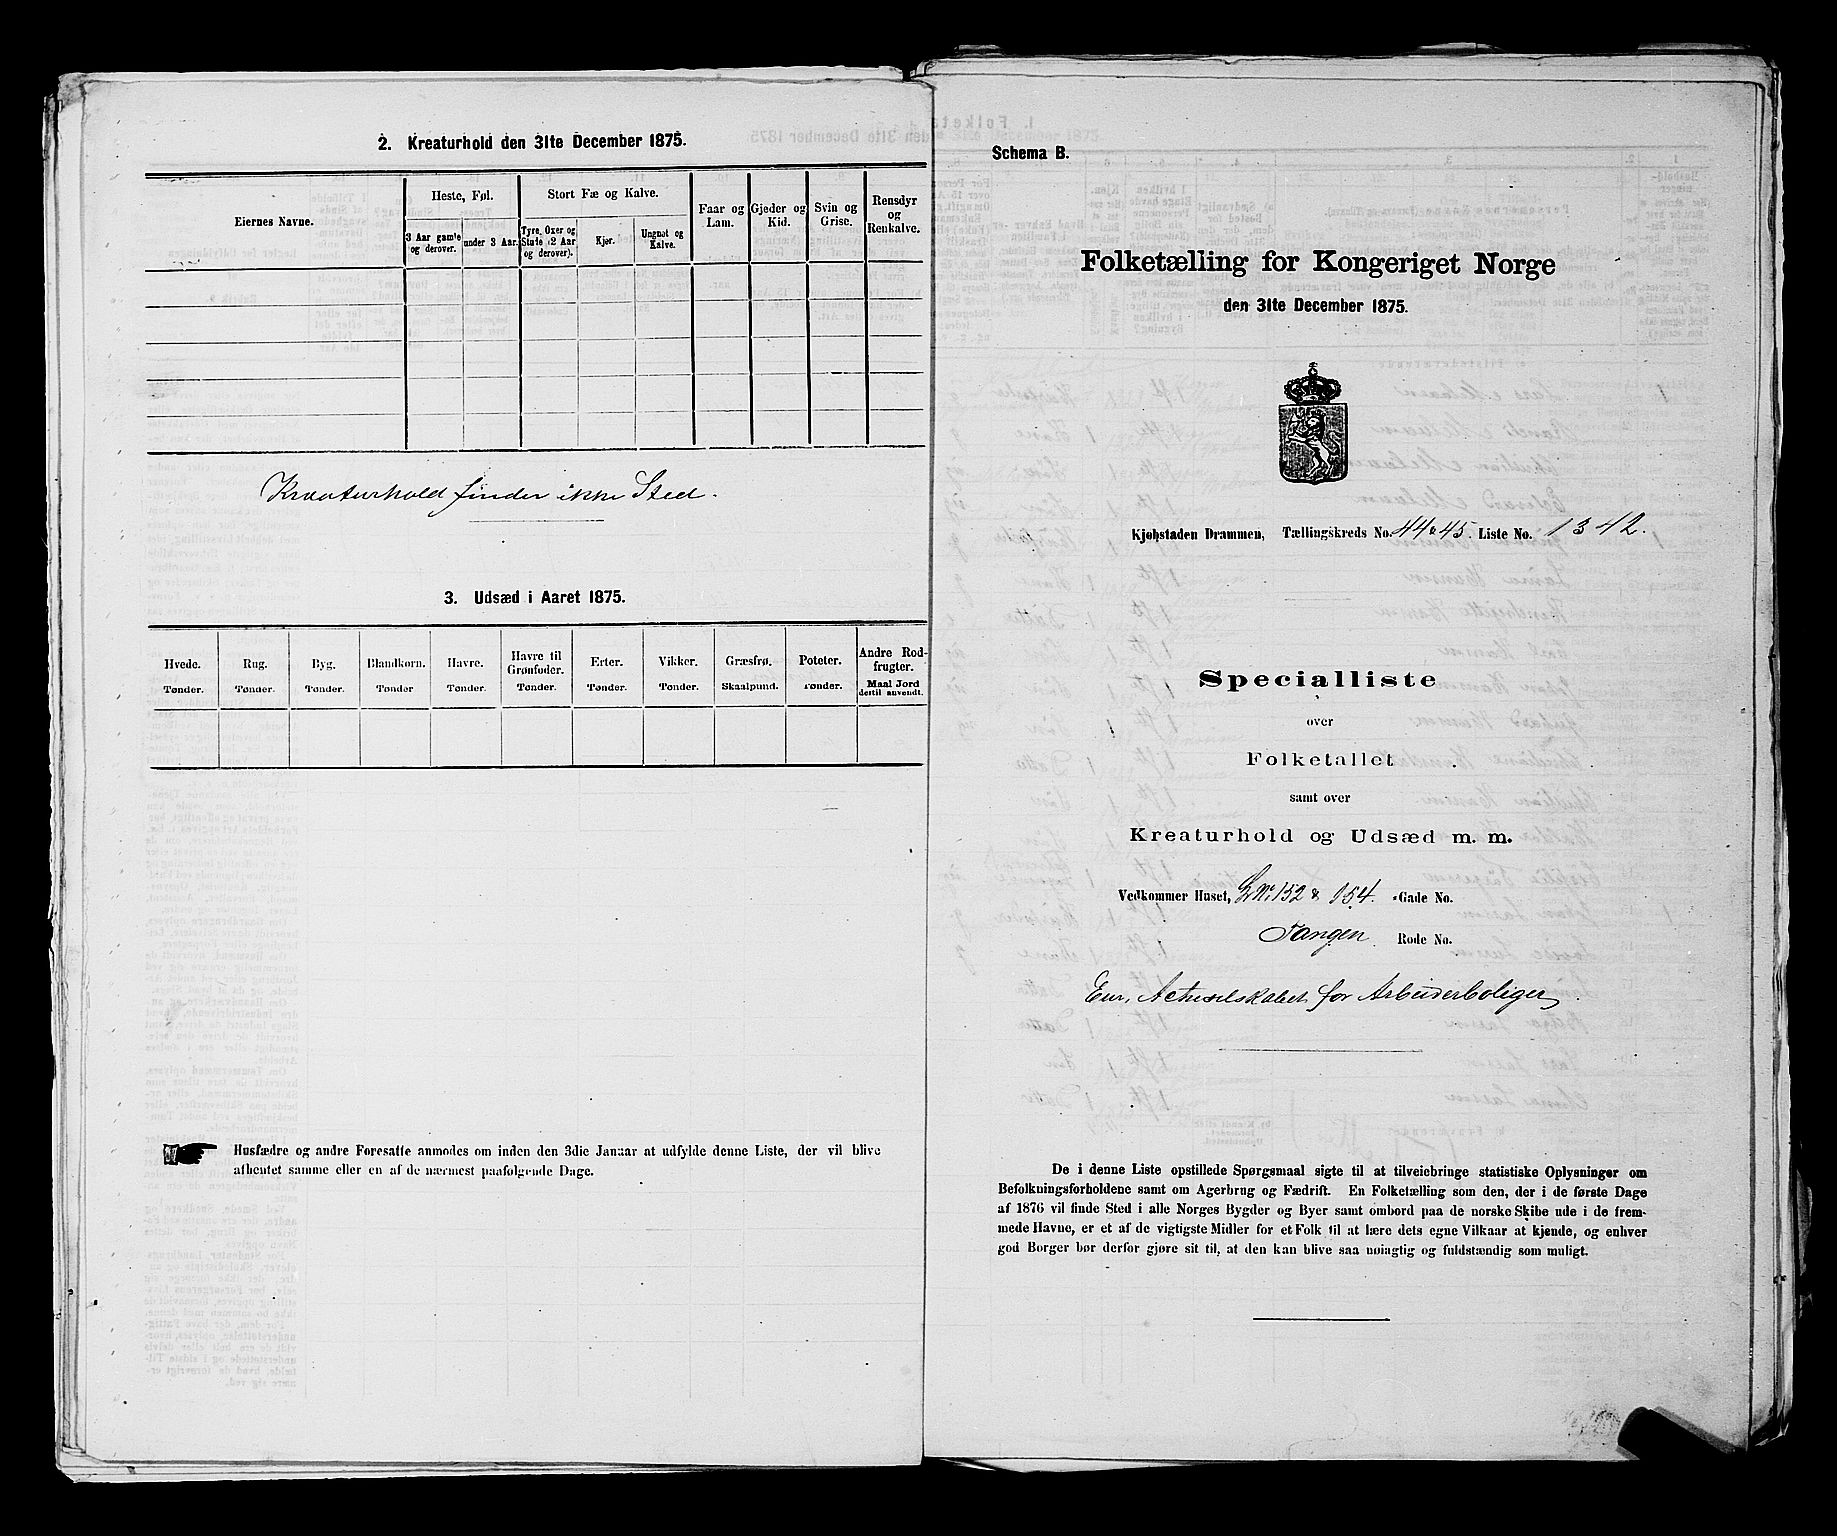 2. Kreaturhold den 31te December 1875.
Eiernes Navne.
Heste, Føl.
Stort Fæ og Kalve.
Faar og Lam.
Gjeder og Kid.
Svin og Grise.
Rensdyr og Renkalve.
3 Aar gamle og derover.
under 3 Aar.
Tyre, Oxer og Stude (2 Aar og derover).
Kjør.
Ungnøt og Kalve.
Kreaturhold finder ikke Sted.
3. Udsæd i Aaret 1875.
Hvede. Rug. Byg. Blandkorn. Havre. Havre til Grønfoder. Erter. Vikker. Græsfrø. Poteter. Andre Rodfrugter.
Tønder. Tønder. Tønder. Tønder Tønder. Tønder. Tønder. Tønder. Skaalpund. Tønder. Maal Jord dertil anvendt.
Husfædre og andre Foresatte anmodes om inden den 3die Januar at udfylde denne Liste, der vil blive
afhentet samme eller en af de nærmest paafølgende Dage.
Schema B.
Folketælling for Kongeriget Norge
den 31te December 1875.
Kjøbstaden Drammen, Tællingskreds No. 44 & 45. Liste No. 1342.
Specialliste
over
Folketallet
samt over
Kreaturhold og Udsæd m. m.
Vedkommer Huset, No. 152 & 154. -Gade No.
Tangen Rode No.
Eier, Actieselskabet for Arbeiderboliger.
De i denne Liste opstillede Spørgsmaal sigte til at tilveiebringe statistiske Oplysninger om
Befolkningsforholdene samt om Agerbrug og Fædrift. En Folketælling som den, der i de første Dage
af 1876 vil finde Sted i alle Norges Bygder og Byer samt ombord paa de norske Skibe ude i de frem-
mede Havne, er et af de vigtigste Midler for et Folk til at lære dets egne Vilkaar at kjende, og enhver
god Borger bør derfor gjøre sit til, at den kan blive saa nøiagtig og fuldstændig som muligt.